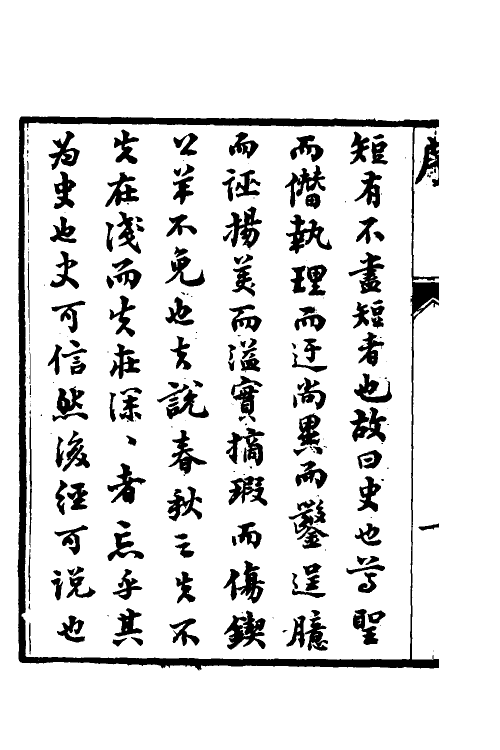 短有不盡短者也故曰史也尊聖
而僭執理而迂尚異而鑿逞臆
而誣揚美而溢實摘瑕而傷鍥
公羊不免也夫說春秋之失不
失在淺而失在深〻者忘乎其
為史也史可信然後經可說也
序
一